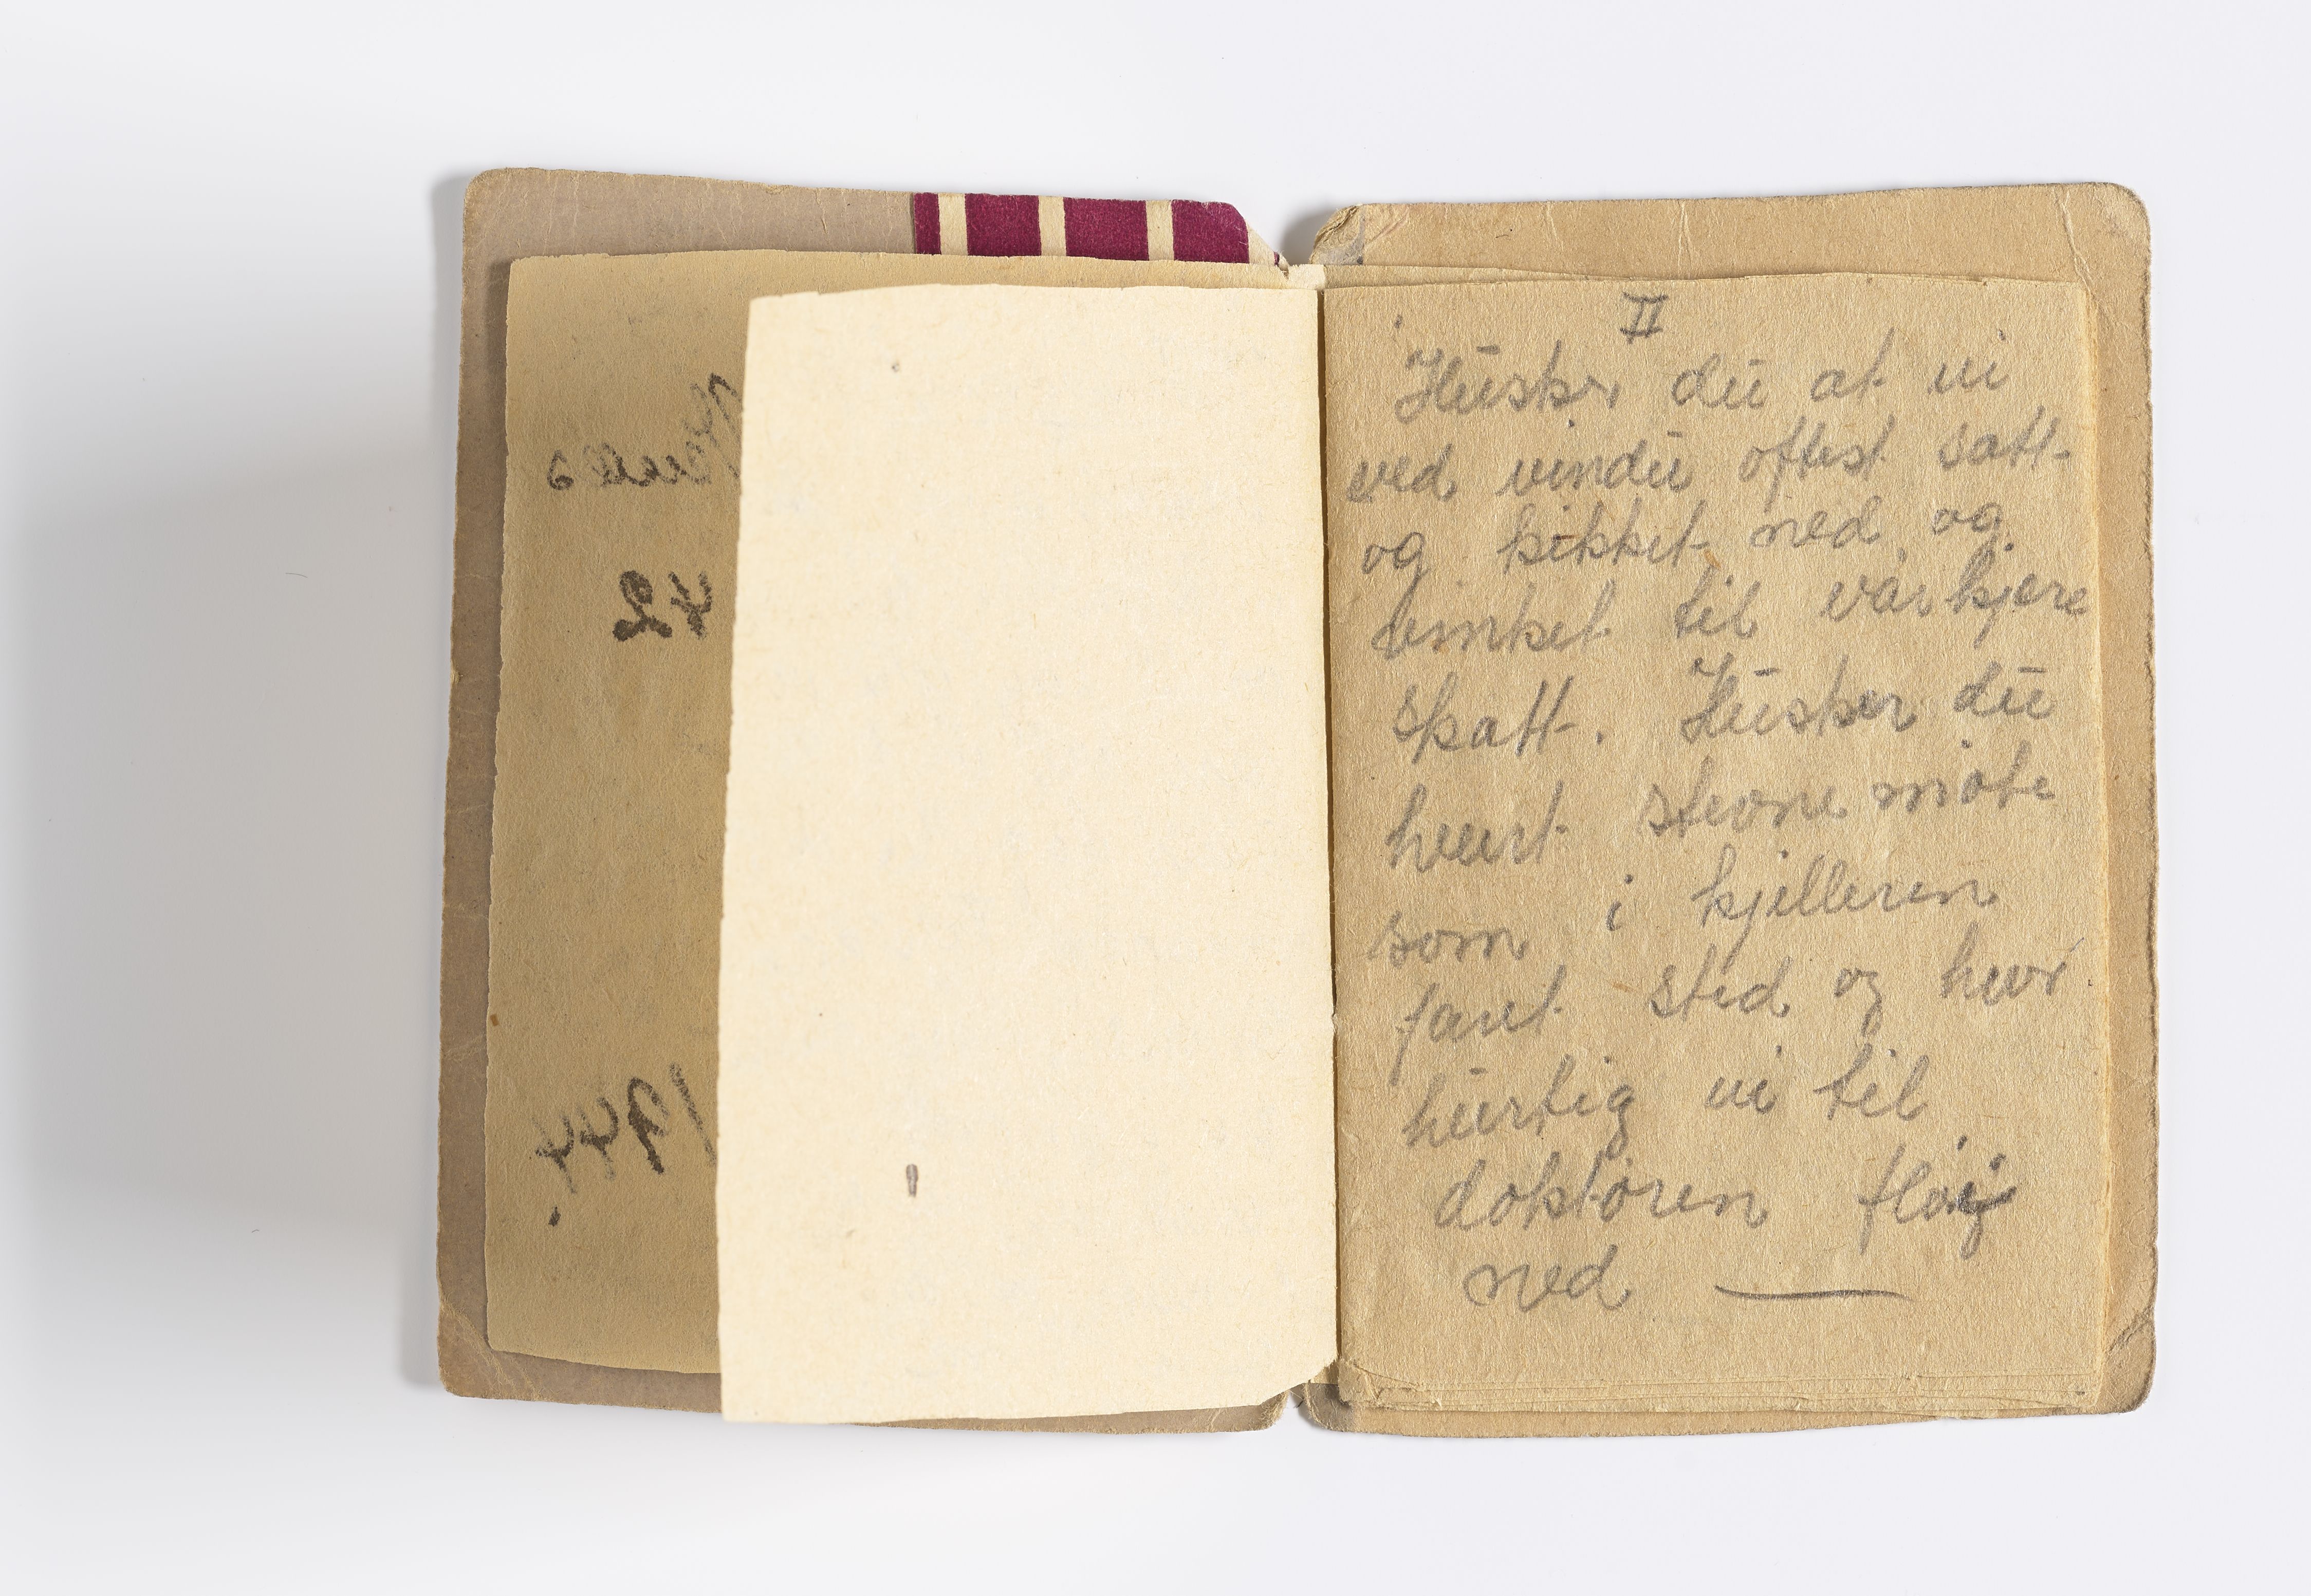 II
Husker du at vi
ved vindu oftest satt
og kikket ned og
vinket til vår kjere
skatt. Husker du
hvert stevne møte
som i kjelleren
fant sted og hvor
hurtig vi til
doktoren fløij
ned —
42
1944.